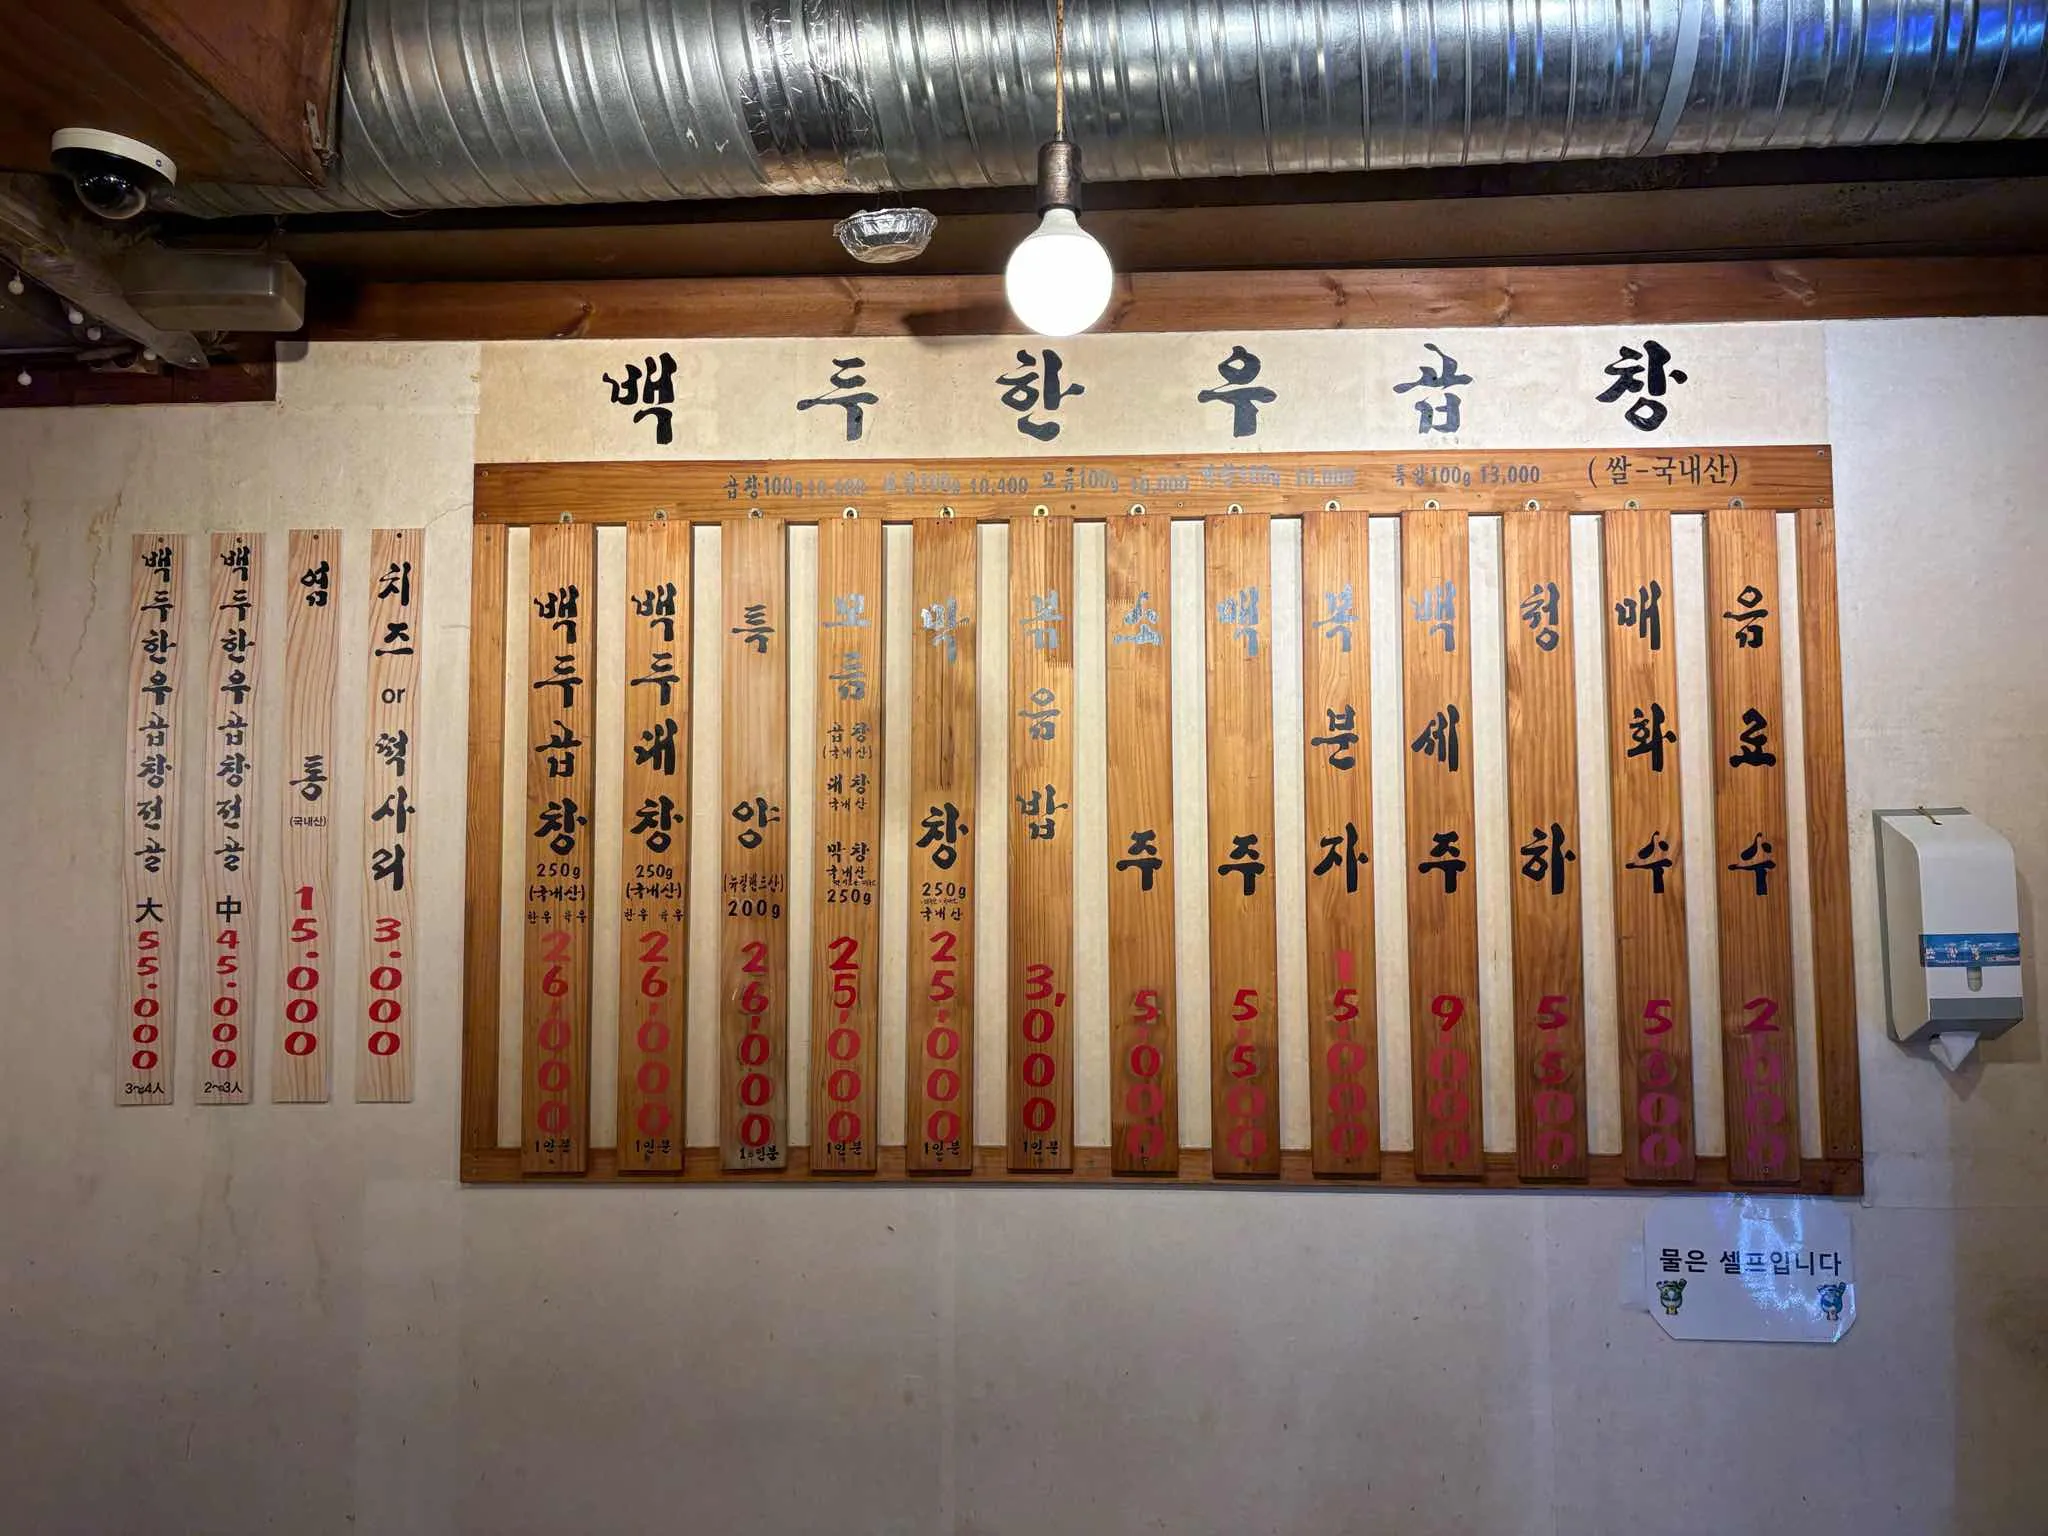 백두한우곱창
곱창100g 10,400 대창100g 10,400 모듬100g 10,000 막창100g 10,000 특양100g 13,000 (쌀-국내산)
백두한우곱창전골 大 55.000 3~4人
백두한우곱창전골 中 45.000 2~3人
염통 (국내산) 15.000
치즈 or 떡사리 3.000
백두곱창 250g (국내산) 한우 육우 26,000 1인분
백두대창 250g (국내산) 한우 육우 26,000 1인분
특양 (뉴질랜드산) 200g 26,000 1인분
모듬 곱창 (국내산) 대창 국내산 막창 국내산 250g 25,000 1인분
막창 250g 국내산 25,000 1인분
볶음밥 3,000 1인분
소주 5,000
맥주 5,500
복분자 15,000
백세주 9,000
청하 5,500
매화수 5,500
음료수 2,000
물은 셀프입니다